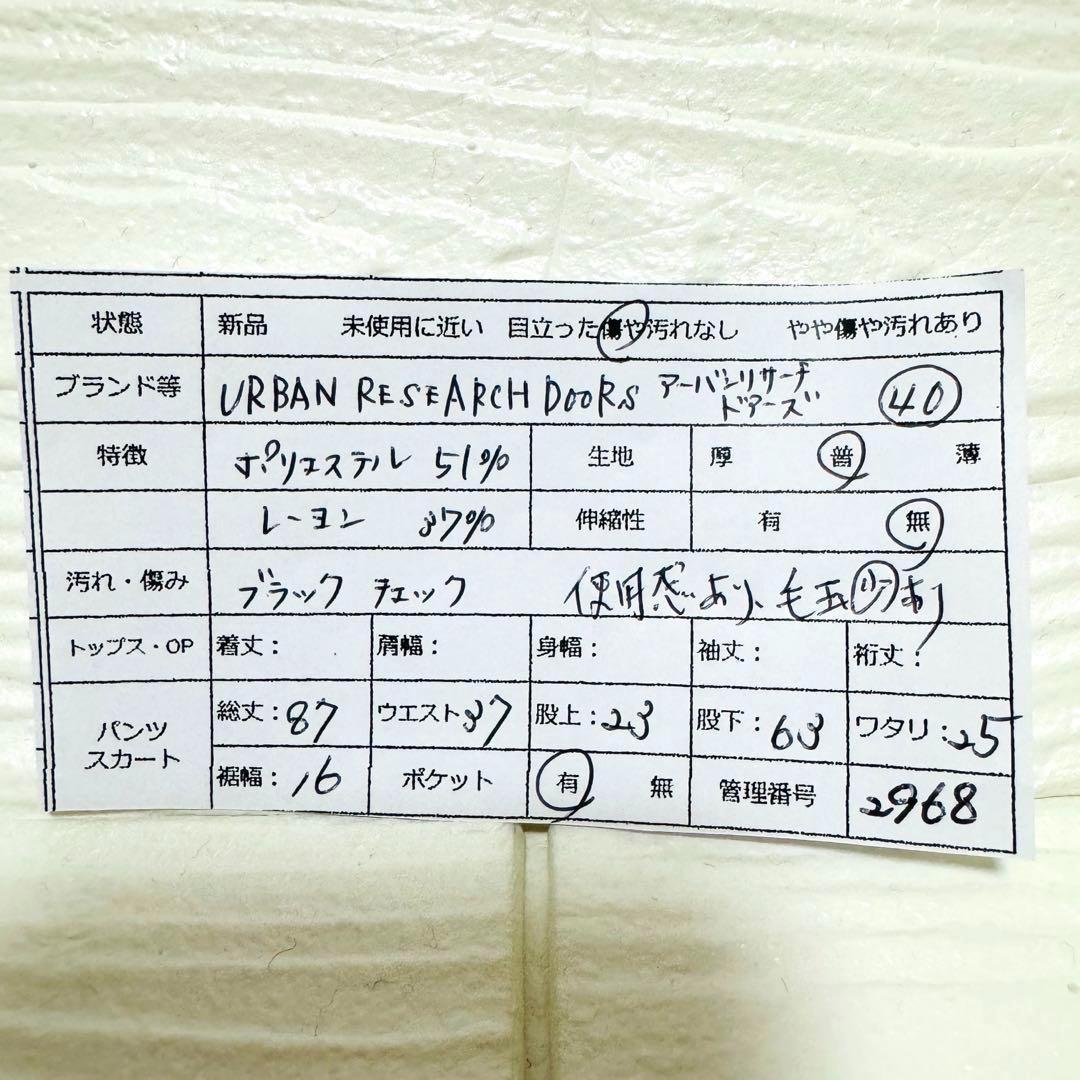 状態 新品 未使用に近い 目立った傷や汚れなし やや傷や汚れあり
ブランド等 URBAN RESEARCH DOORS アーバンリサーチ ドアーズ 40
特徴 ポリエステル 51% 生地 厚 普 薄
レーヨン 37% 伸縮性 有 無
汚れ・傷み ブラック チェック 使用感あり、毛玉少あり
トップス・OP 着丈: 肩幅: 身幅: 袖丈: 裄丈:
パンツ スカート 総丈:87 ウエスト37 股上:23 股下:63 ワタリ:25
裾幅:16 ポケット 有 無 管理番号 2968